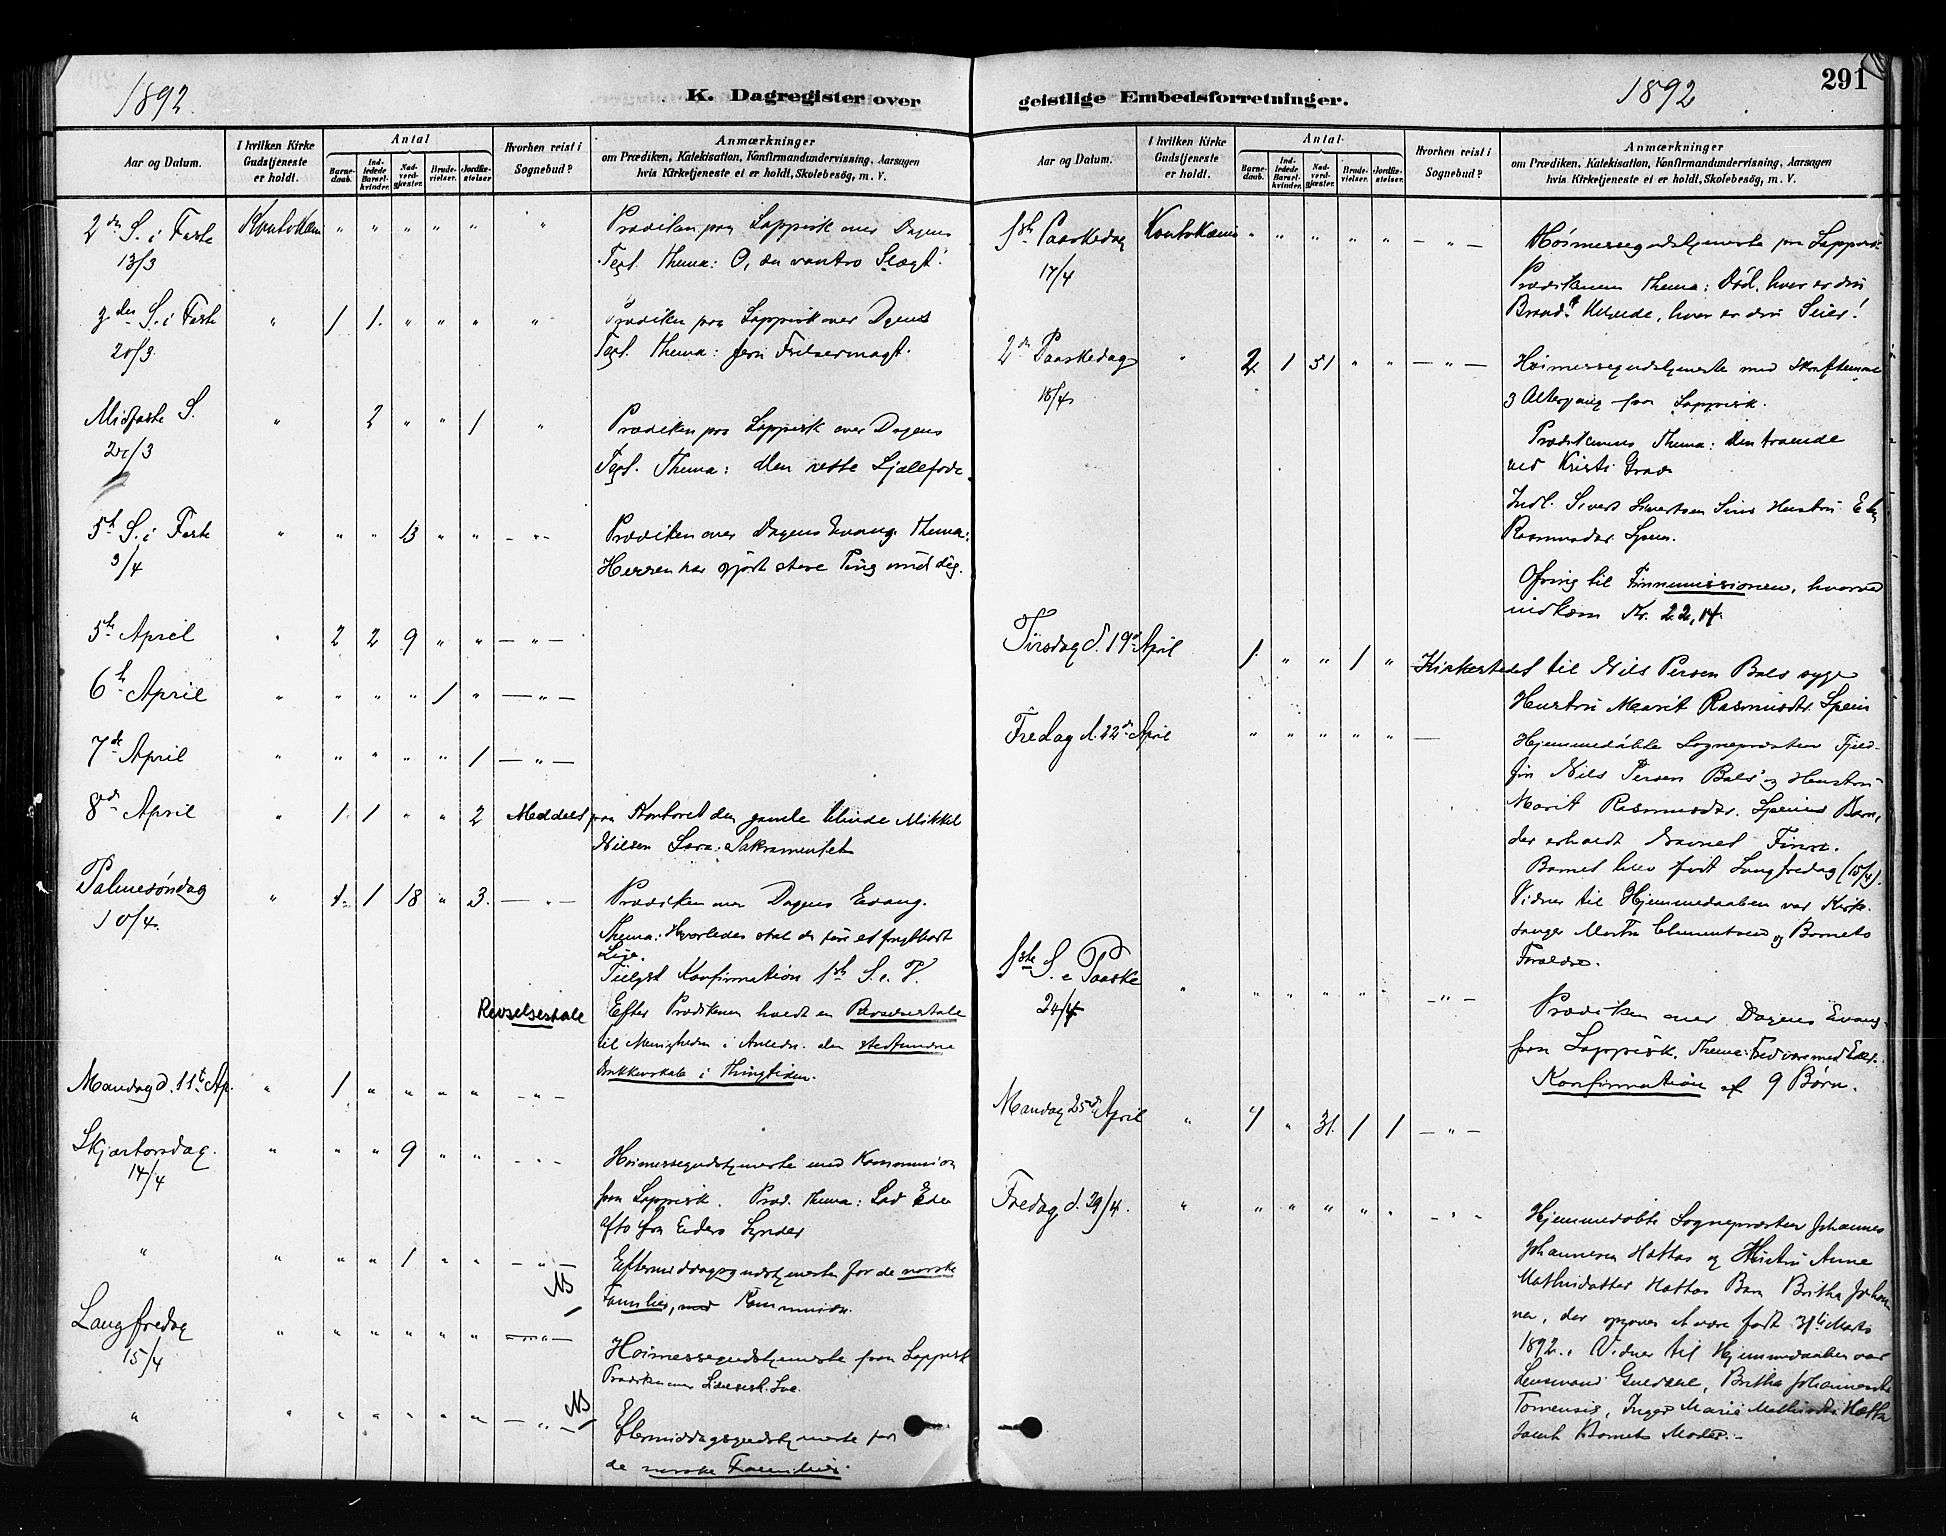 1892.
K. Dagregister over
Aar og Datum.
I hvilken Kirke Gudstjeneste er holdt.
Antal
Barne-daab.
Ind-ledede Barsel-kvinder.
Nad-verd-gjæster.
Brude-vielser.
Jordfæ-stelser.
Hvorhen reist i Sognebud?
Anmærkninger
om Prædiken, Katekisation, Konfirmandundervisning, Aarsagen
hvis Kirketjeneste ei er holdt, Skolebesög, m. V.
2den S. i Faste Koutokæino " " " " " " Prædiken paa Lappisk over Dagens
13/3 Text. Thema: O, du vantro Slægt!
3die S. i Faste " 1 1. " " " " Prædiken paa Lappisk over Dagens
20/3 Text. Thema: Jesu Frelsermagt.
Midfaste S. " 2 " " 1 " Prædiken paa Lappisk over Dagens
/3 Text. Thema: Den rette Sjæleføde.
5te S. i Faste " " " 13 " " — " — Prædiken over Dagens Evang. Thema:
3/4 Herren har gjort store Ting imod dig.
5te April " 2 2 9 " " — " —
6te April " " " " 1 " — " —
7de April " " " " " 1 — " —
8de April " 1 1 " " 2 Meddelt paa Kontoret den gamle blinde Mikkel
Nilsen Sara: Sakramentet
Palmesöndag " 1. 1 18 " 3. — " — Prædiken over Dagens Evang.
10/4. Thema: Hvorledes skal du føre et frygtbart
Liv.
Tillyst Konfirmation 1ste S. e. P.
Revselsestale Efter Prædikenen holdt en Revselsestale
til Menigheden i Anledn. den stedfundne
Drukkenskab i Thingtiden.
Mandag d. 11te Ap. " 1 " " " " — " —
Skjærtorsdag. " " " 9 " " — " — Høimessegudstjeneste med Kommunion
14/4 paa Lappisk. Præd. Thema: Lad Eder
afto fra Eders Synder
" " " " 1 " " — " — Eftermiddagsgudstjeneste for de norske
NB Familier, med Kommunion.
Langfredag " " " " " " — " — Høimessegudstjeneste paa Lappisk
15/4 Prædiken over Lidelsesh.
" " " " " " " — " — NB Eftermiddagsgudstjeneste for
de norske Familier.
geistlige Embedsforretninger.
1892
291
Aar og Datum.
I hvilken Kirke Gudstjeneste er holdt.
Antal
Barne-daab.
Ind-ledede Barsel-kvinder.
Nad-verd-gjæster.
Brude-vielser.
Jordfæ-stelser.
Hvorhen reist i Sognebud?
Anmærkninger
om Prædiken, Katekisation, Konfirmandundervisning, Aarsagen
hvis Kirketjeneste ei er holdt, Skolebesög, m. V.
1ste Paaskedag Koutokæino " " " " " — " — Høimessegudstjeneste paa Lappisk.
17/4 Prædikenens Thema: Død, hvor er din
Braad? Helvede, hvor er din Seier!
2den Paaskedag " 2 1 51 " " — " — Høimessegudstjeneste med Skriftemaal
18/4 & Altergang paa Lappisk.
Prædikenens Thema: Den troende
ved Kristi Grav
Indl. Sivert Sivertsen Hustru
Rasmusdtr. Spein.
Ofring til Finnemissionen, hvorved
indkom Kr. 22,14.
Tirsdag d. 19de April 1. " " 1 " Kirkestedet til Nils Persen Bals syge
Hustru Marit Rasmusdtr. Spein
Fredag d. 22de April " " " " " — Hjemmedøbte Sognepræsten
Nils Persen Bals og Hustru
Marit Rasmusdtr. Speins Barn,
der erholdt Navnet
Barnet blev født Langfredag (15/4).
Vidner til Hjemmedaaben var Kirke-
sanger Clementsen og Barnets
Forældre.
1ste S. e. Paaske " " " " " " — " —
24/4 Prædiken over Dagens Evang.
paa Lappisk. Thema: Fred være med Eder.
Konfirmation af 9 Børn.
Mandag 25de April " 4 " 31. 1 1 — " —
Fredag d. 29/4. " " " " " " — " — Hjemmedøbte Sognepræsten Johannes
Johannesen Hættas og Hustru Anne
Mathisdatter Hættas Barn Britha Johan-
ne, der opgives at være født 31te Marts
1892. Vidner til Hjemmedaaben var
Lensmand Britha Johannesdtr.
Tornensis, Inger Marie Mathisdtr. Hætta
samt Barnets Moder.-